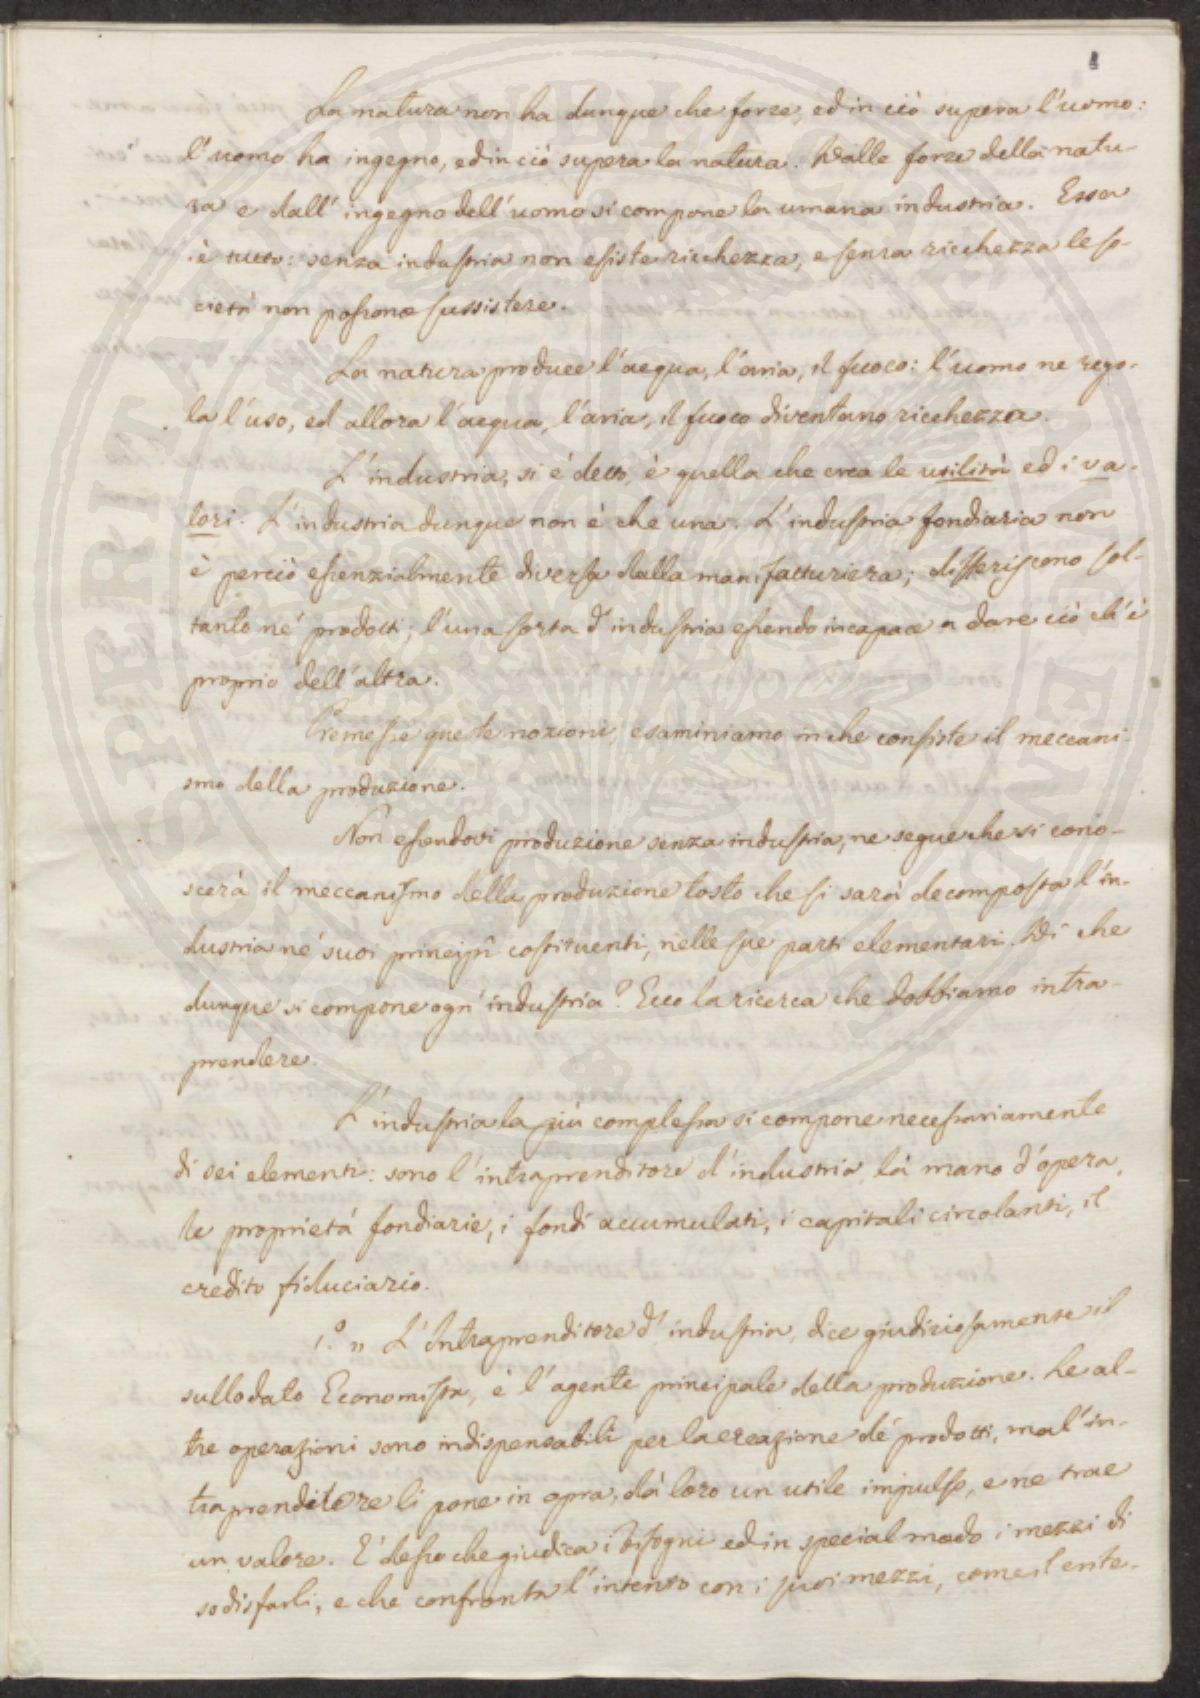 La natura non ha dunque che forze, ed in ciò supera l'uomo:
l'uomo ha ingegno, ed in ciò supera la natura. Dalle forze della natu-
ra e dall'ingegno dell'uomo si compone la umana industria. Essa
è tutto: senza industria non esiste ricchezza, e senza ricchezza le so-
cietà non possono sussistere.
La natura produce l'acqua, l'aria, il fuoco: l'uomo ne rego-
la l'uso, ed allora l'acqua, l'aria, il fuoco diventano ricchezza.
L'industria, si è detto, è quella che crea le utilità ed i va-
lori. L'industria dunque non è che una. L'industria fondiaria non
è perciò essenzialmente diversa dalla manifatturiera; differiscono sol-
tanto ne' prodotti; l'una sorta d'industria essendo incapace a dare ciò ch'è
proprio dell'altra.
Premesse queste nozioni, esaminiamo in che consiste il meccani-
smo della produzione.
Non essendovi produzione senza industria, ne segue che si cono-
scerà il meccanismo della produzione tosto che si sarà decomposta l'in-
dustria ne' suoi principî costituenti, nelle sue parti elementari. Di che
dunque si compone ogn'industria? Ecco la ricerca che dobbiamo intra-
prendere.
L'industria la più complessa si compone necessariamente
di sei elementi: sono l'intraprenditore d'industria, la mano d'opera,
le proprietà fondiarie, i fondi accumulati, i capitali circolanti, il
credito fiduciario.
1.° „ L'Intraprenditore d'industria, dice giudiziosamente il
sullodato Economista, è l'agente principale della produzione. Le al-
tre operazioni sono indispensabili per la creazione de' prodotti, ma l'in-
traprenditore li pone in opra, dà loro un utile impulso, e ne trae
un valore. E' desso che giudica i bisogni ed in special modo i mezzi di
sodisfarli, e che confronta l'intento con i suoi mezzi, come il ente-
PROSPERITATI PUBLICAE AUGENDAE